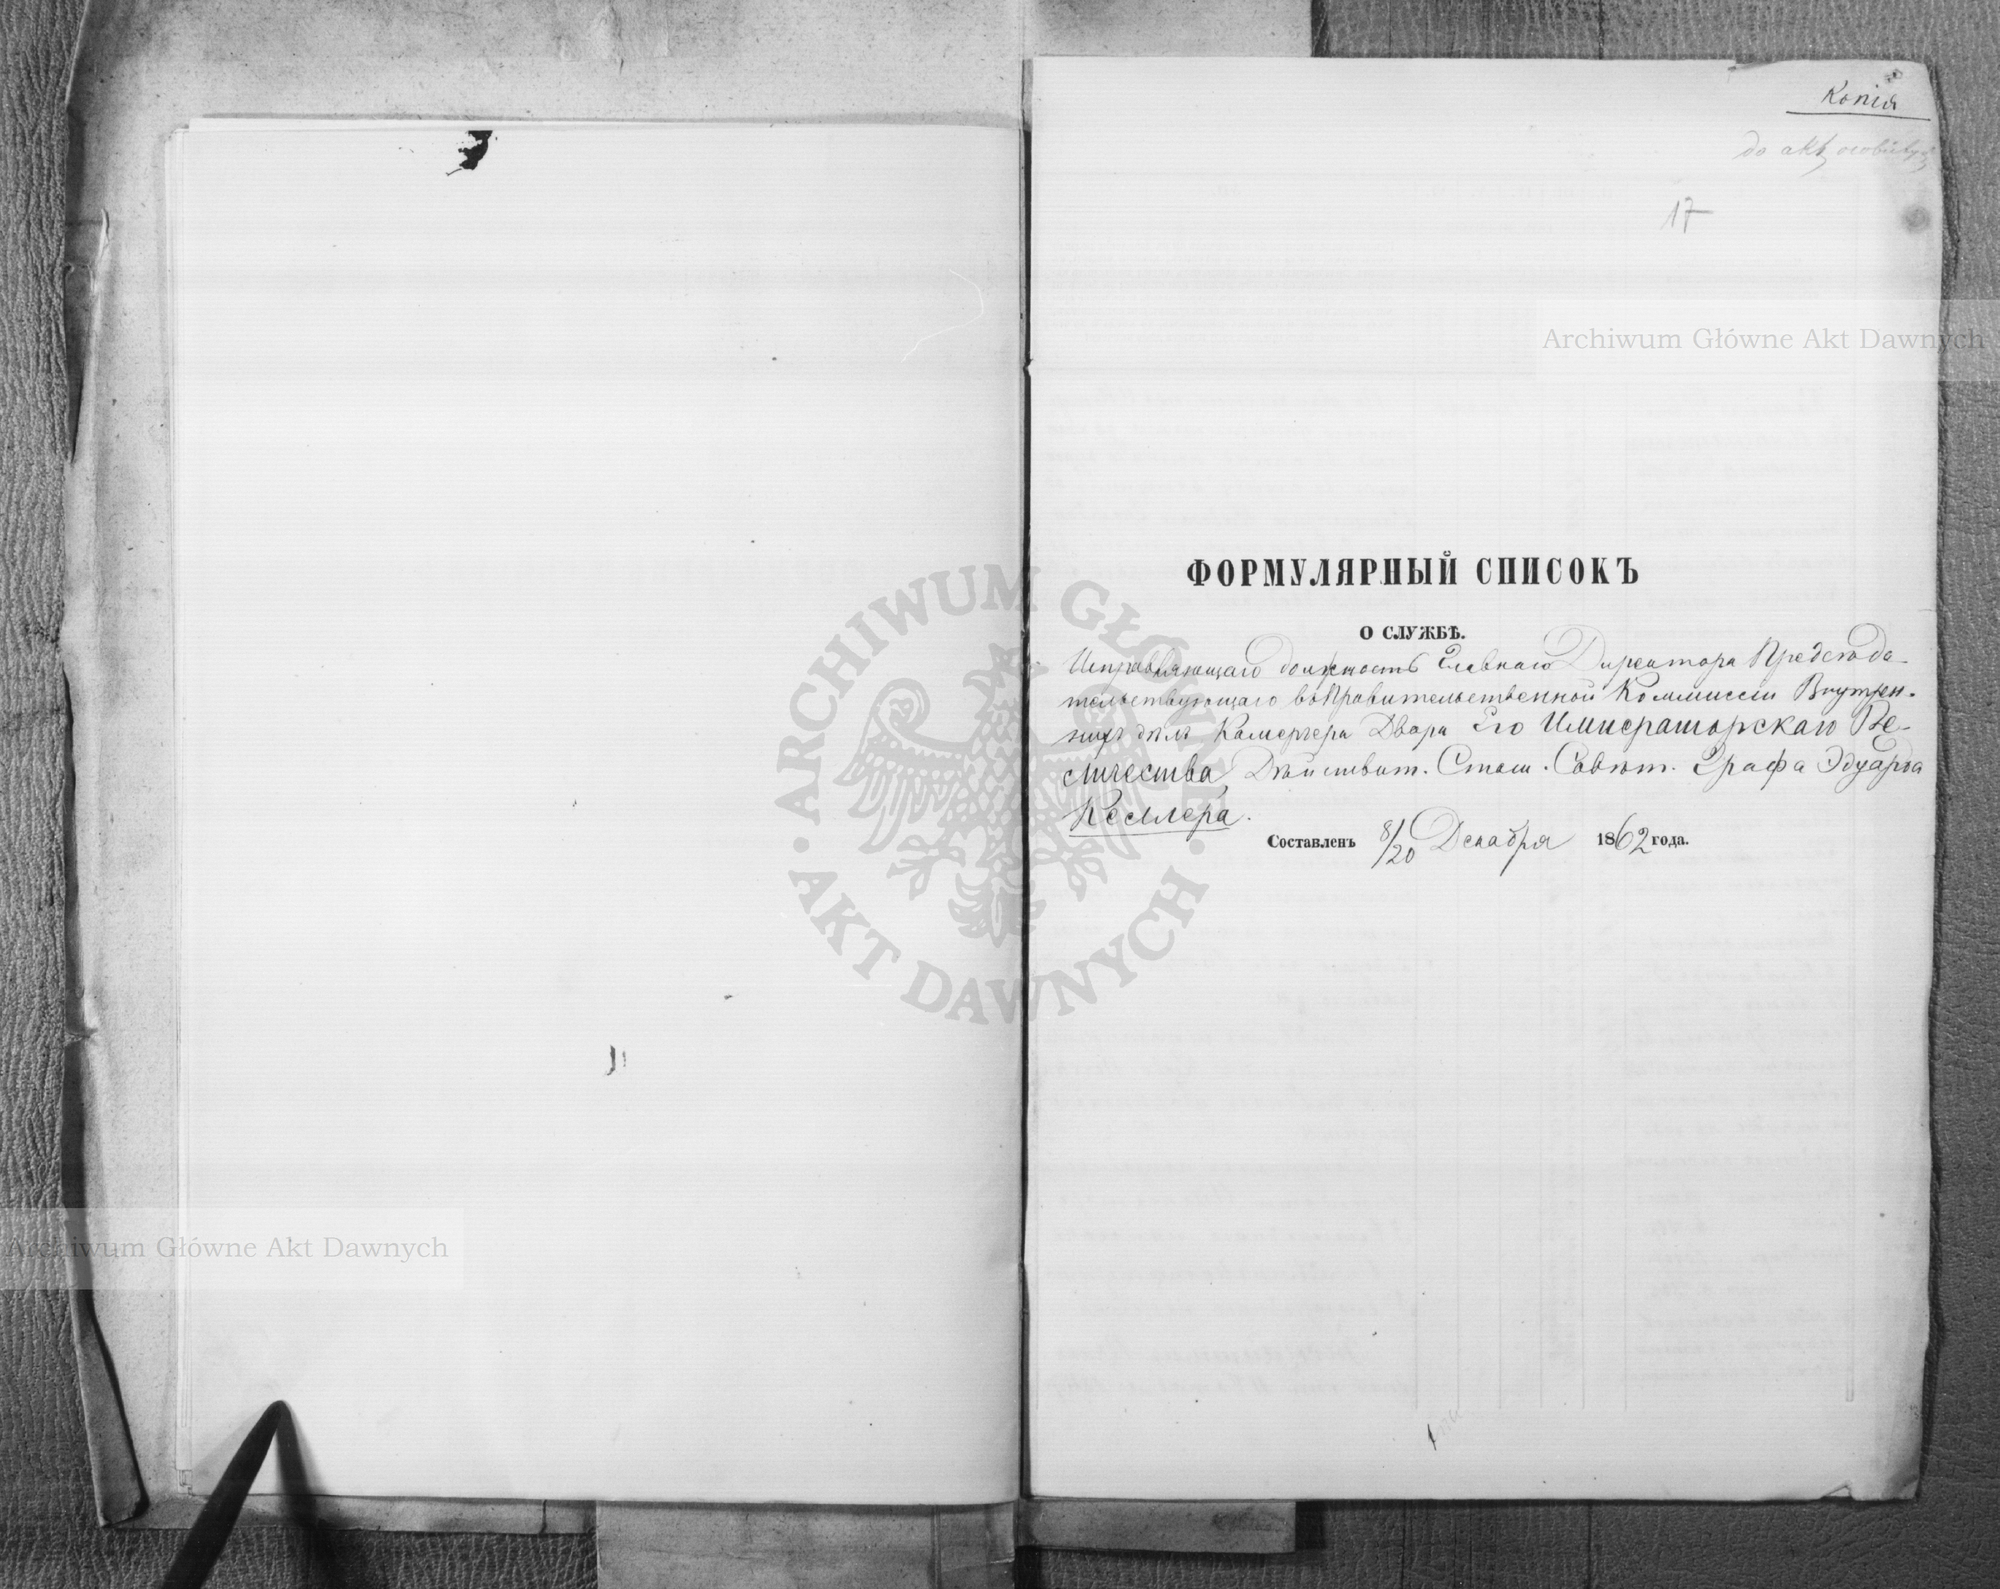 Копія
do akt osobistych
17
ФОРМУЛЯРНЫЙ СПИСОКЪ
О СЛУЖБѢ.
Исправляющаго должность Главнаго Директора Предсѣда-
тельствующаго въ Правительственной Коммиссіи Внутрен-
нихъ дѣлъ Камергера Двора Его Императорскаго Ве-
личества, Дѣйствит. Стат. Совѣт. Графа Эдуарда
Келлера.
Составленъ 8/20 Декабря 1862 года.
Archiwum Główne Akt Dawnych
Archiwum Główne Akt Dawnych
ARCHIWUM GŁÓWNE · AKT DAWNYCH ·